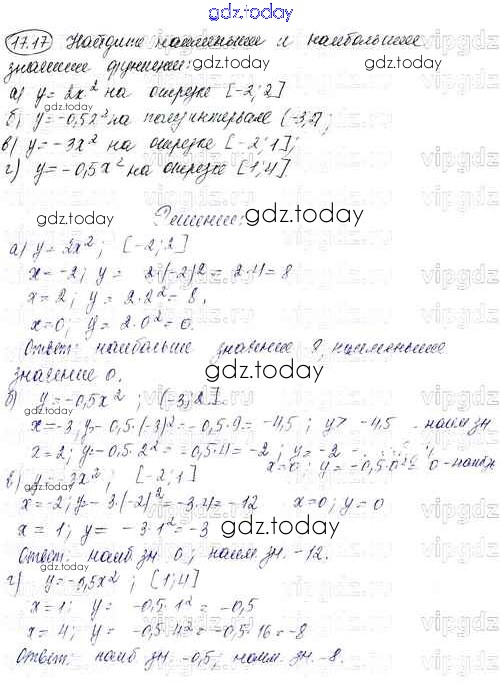 gdz.today
17.17 Найдите наименьшее и наибольшее
gdz.today
значение функции:
а) y = 2x² на отрезке [-2; 2]
б) y = -0,5x² на полуинтервале (-3; 2];
в) y = -3x² на отрезке [-2; 1];
г) y = -0,5x² на отрезке [1; 4]
gdz.today
Решение:
gdz.today
а) y = 2x²; [-2; 2]
x = -2; y = 2·(-2)² = 2·4 = 8
x = 2; y = 2·2² = 8.
x = 0; y = 2·0² = 0.
Ответ: наибольшее значение 8, наименьшее
значение 0.
gdz.today
б) y = -0,5x²; (-3; 2]
x = -3; y = -0,5·(-3)² = -0,5·9 = -4,5; y > -4,5 - наим зн
x = 2; y = -0,5·2² = -0,5·4 = -2; y = -2
x = 0; y = -0,5·0² = 0 - наиб
в) y = -3x²; [-2; 1]
x = -2; y = -3·(-2)² = -3·4 = -12 x = 0; y = 0
x = 1; y = -3·1² = -3
gdz.today
Ответ: наиб зн. 0; наим. зн. -12.
г) y = -0,5x²; [1; 4]
x = 1; y = -0,5·1² = -0,5
x = 4; y = -0,5·4² = -0,5·16 = -8
Ответ: наиб зн. -0,5; наим. зн. -8.
gdz.today